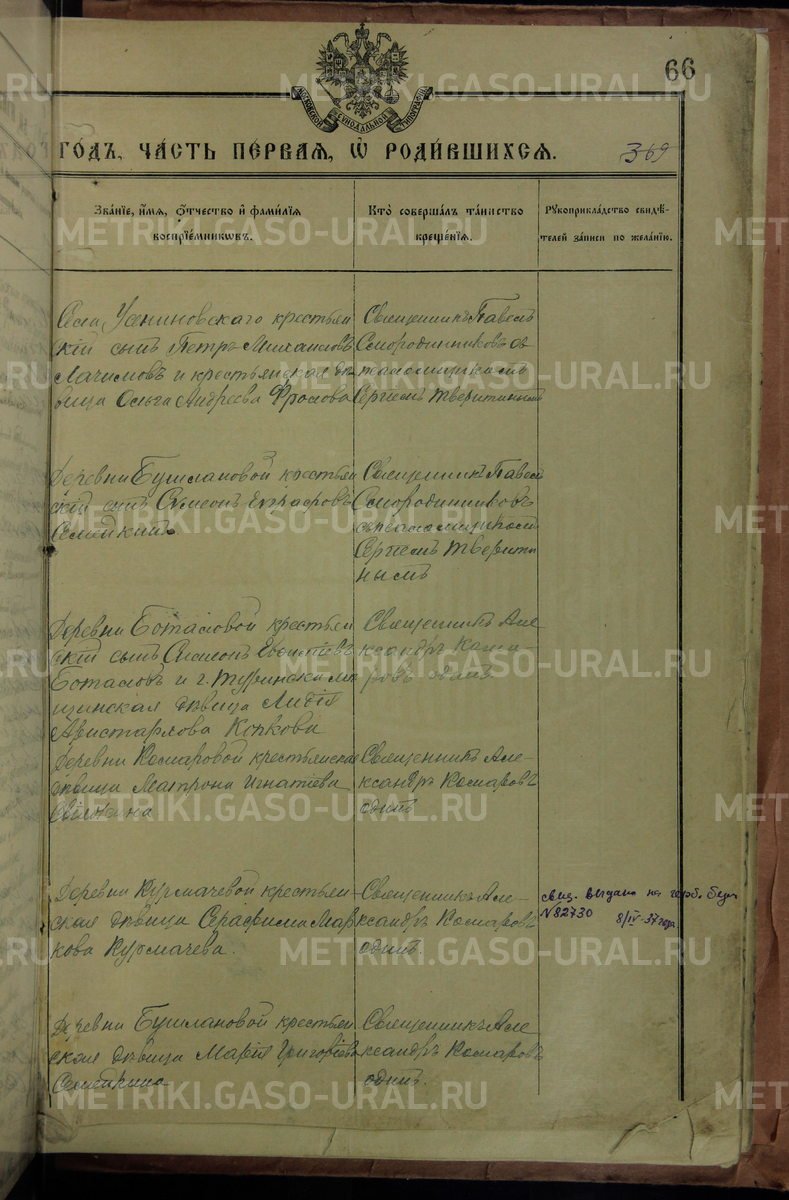 66
МОСКОВСКОЙ СѴНОДАЛЬНОЙ ТИПОГРАФІИ
ГО́ДЪ, ЧА́СТЬ ПЕ́РВАЯ, Ѡ҆ РОДИ́ВШИХСЯ.
369
Зва́нїе, и҆́мѧ, ѻ҆́тчество и҆ фами́лїѧ
воспрїе́мникѡвъ.
Кто̀ соверша́лъ та́инство
креще́нїѧ.
Рꙋкоприкла́дство свидѣ́-
телей за́писи по жела́нїю.
Села Усениновскаго крестьян
скій сынъ Петръ Михаиловъ
Лачимовъ и крестьянская дѣ
вица Ольга Андреева Фролова
Священникъ Павелъ
Смородинниковъ съ
псаломщикомъ
Сергіемъ Тверитинымъ
Деревни Бушлановой крестьян
скій сынъ Сѵмеонъ
Семейкинъ
Священникъ Павелъ
Смородинниковъ
съ псаломщикомъ
Сергіемъ Тверити
нымъ
Деревни Боталовой крестьян
скій сынъ Симеонъ
Боталовъ и г. Туринска мѣ
щинская дѣвица Лидія
Аристархова Копкова
Священникъ Але
ксандръ Кома-
ровъ одинъ
Деревни Комаровой крестьянская
дѣвица Матрона Игнатіева
Священникъ Але-
ксандръ Комаровъ
одинъ
Деревни Курмачевой крестьян-
ская дѣвица Серафима Мар
кова Курмачева.
Священникъ Але-
ксандръ Комаровъ
одинъ.
свид. выдано на герб. бум
№82730 8/IV-37 года.
Деревни Бушлановой крестьян
ская дѣвица Марія Григоріева
Семейкина
Священникъ Але
ксандръ Комаровъ
одинъ.
METRIKI.GASO-URAL.RU